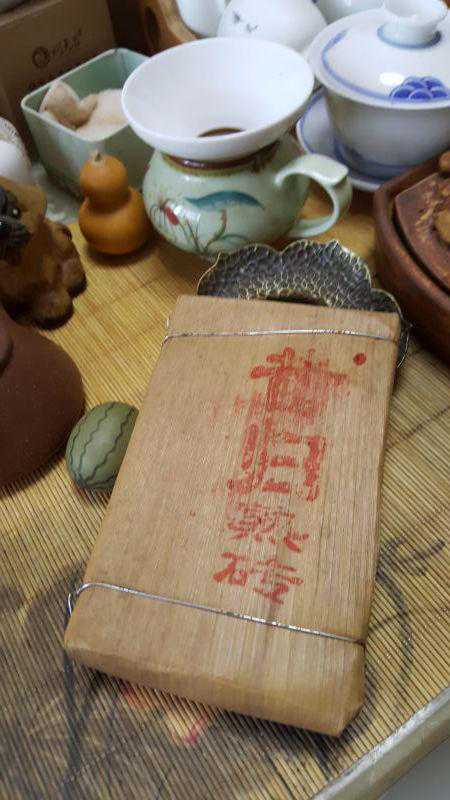 昔归熟砖